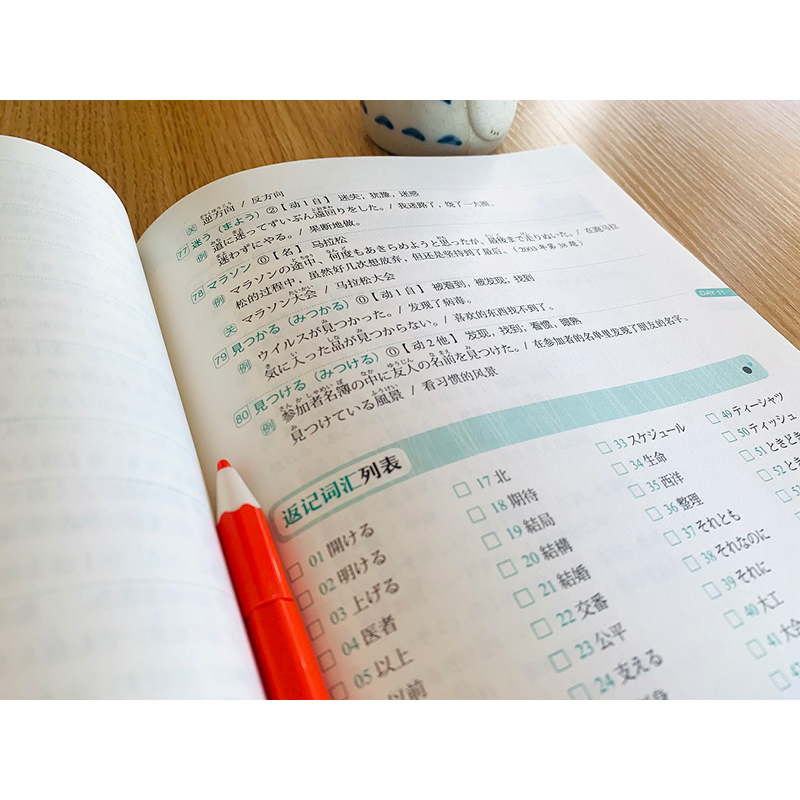 关 逆方向 / 反方向
77 迷う（まよう）②【动1自】 迷失；犹豫，迷惑
例 道に迷ってずいぶん遠回りをした。/ 我迷路了，绕了一大圈。
迷わずにやる。/ 果断地做。
78 マラソン ⓪【名】 马拉松
例 マラソンの途中、何度もあきらめようと思ったが、最後まで走りぬいた。/ 在跑马拉
松的过程中，虽然好几次想放弃，但还是坚持到了最后。（2003年第38题）
关 マラソン大会 / 马拉松大会
79 見つかる（みつかる）⓪【动1自】 被看到，被发现；找到
例 ウイルスが見つかった。/ 发现了病毒。
気に入った品が見つからない。/ 喜欢的东西找不到了。
80 見つける（みつける）⓪【动2他】 发现，找到；看惯，眼熟
例 参加者名簿の中に友人の名前を見つけた。/ 在参加者的名单里发现了朋友的名字。
見つけている風景 / 看习惯的风景
DAY 11
返记词汇列表
01 開ける
02 明ける
03 上げる
04 医者
05 以上
以前
17 北
18 期待
19 結局
20 結構
21 結婚
22 交番
23 公平
24 支える
33 スケジュール
34 生命
35 西洋
36 整理
37 それとも
38 それなのに
39 それに
40 大工
41 大会
49 ティーシャツ
50 ティッシュ
51 ときどき
52 とき